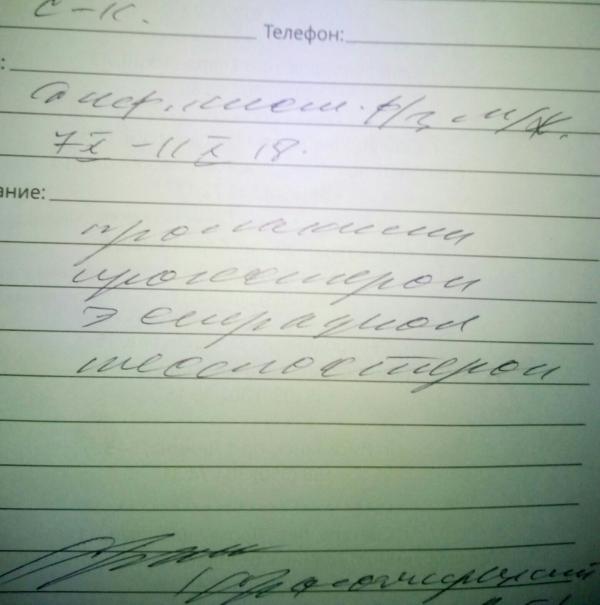 с-к.
Телефон:
:
диф. мест. t/ц м/ж.
7 X - 11 X 18.
ание:
пролактин
прогестерон
эстрадиол
тестостерон